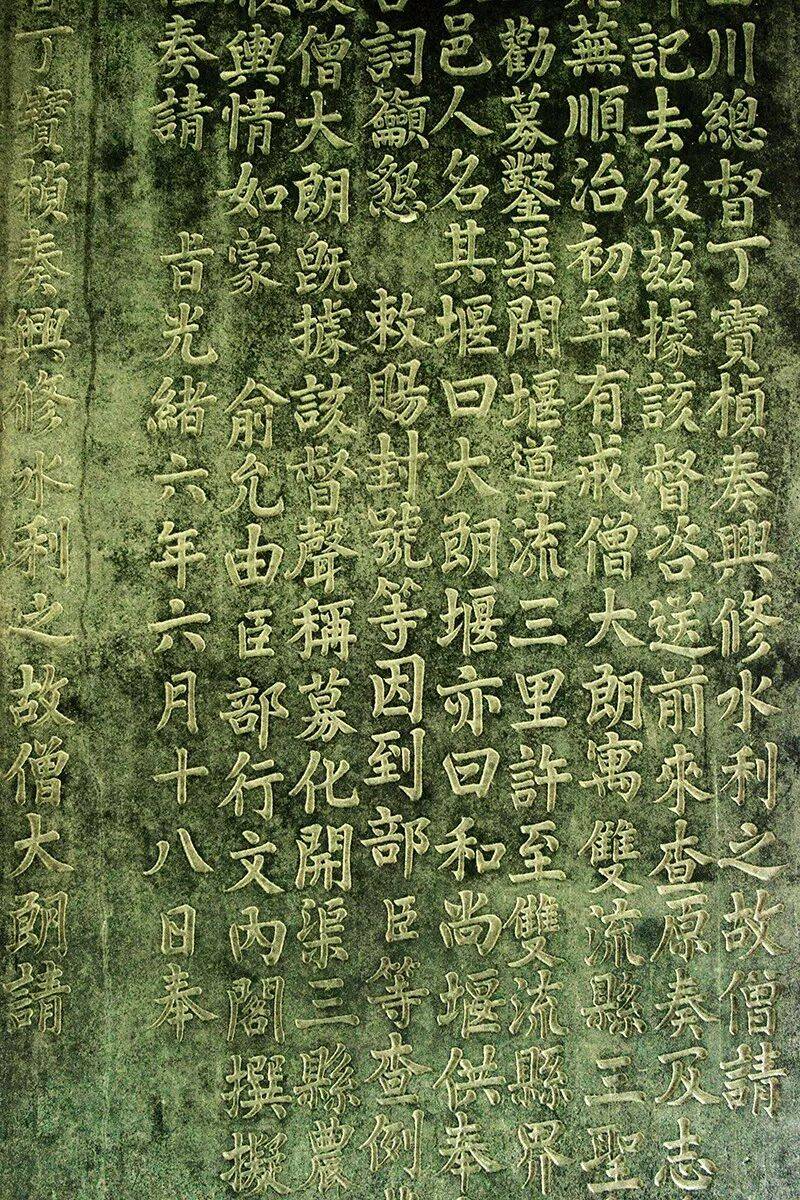 川總督丁寶楨奏興修水利之故僧請
記去後玆據該督咨送前來查原奏及志
蕪順治初年有戒僧大朗寓雙流縣三聖
勸募鑿渠開堰導流三里許至雙流縣界
邑人名其堰曰大朗堰亦曰和尚堰供奉
詞籲懇 敕賜封號等因到部臣等查例
故僧大朗旣據該督聲稱募化開渠三縣農
輿情如蒙 俞允由臣部行文內閣撰擬
奏請 旨光緒六年六月十八日奉
丁寶楨奏興修水利之故僧大朗請